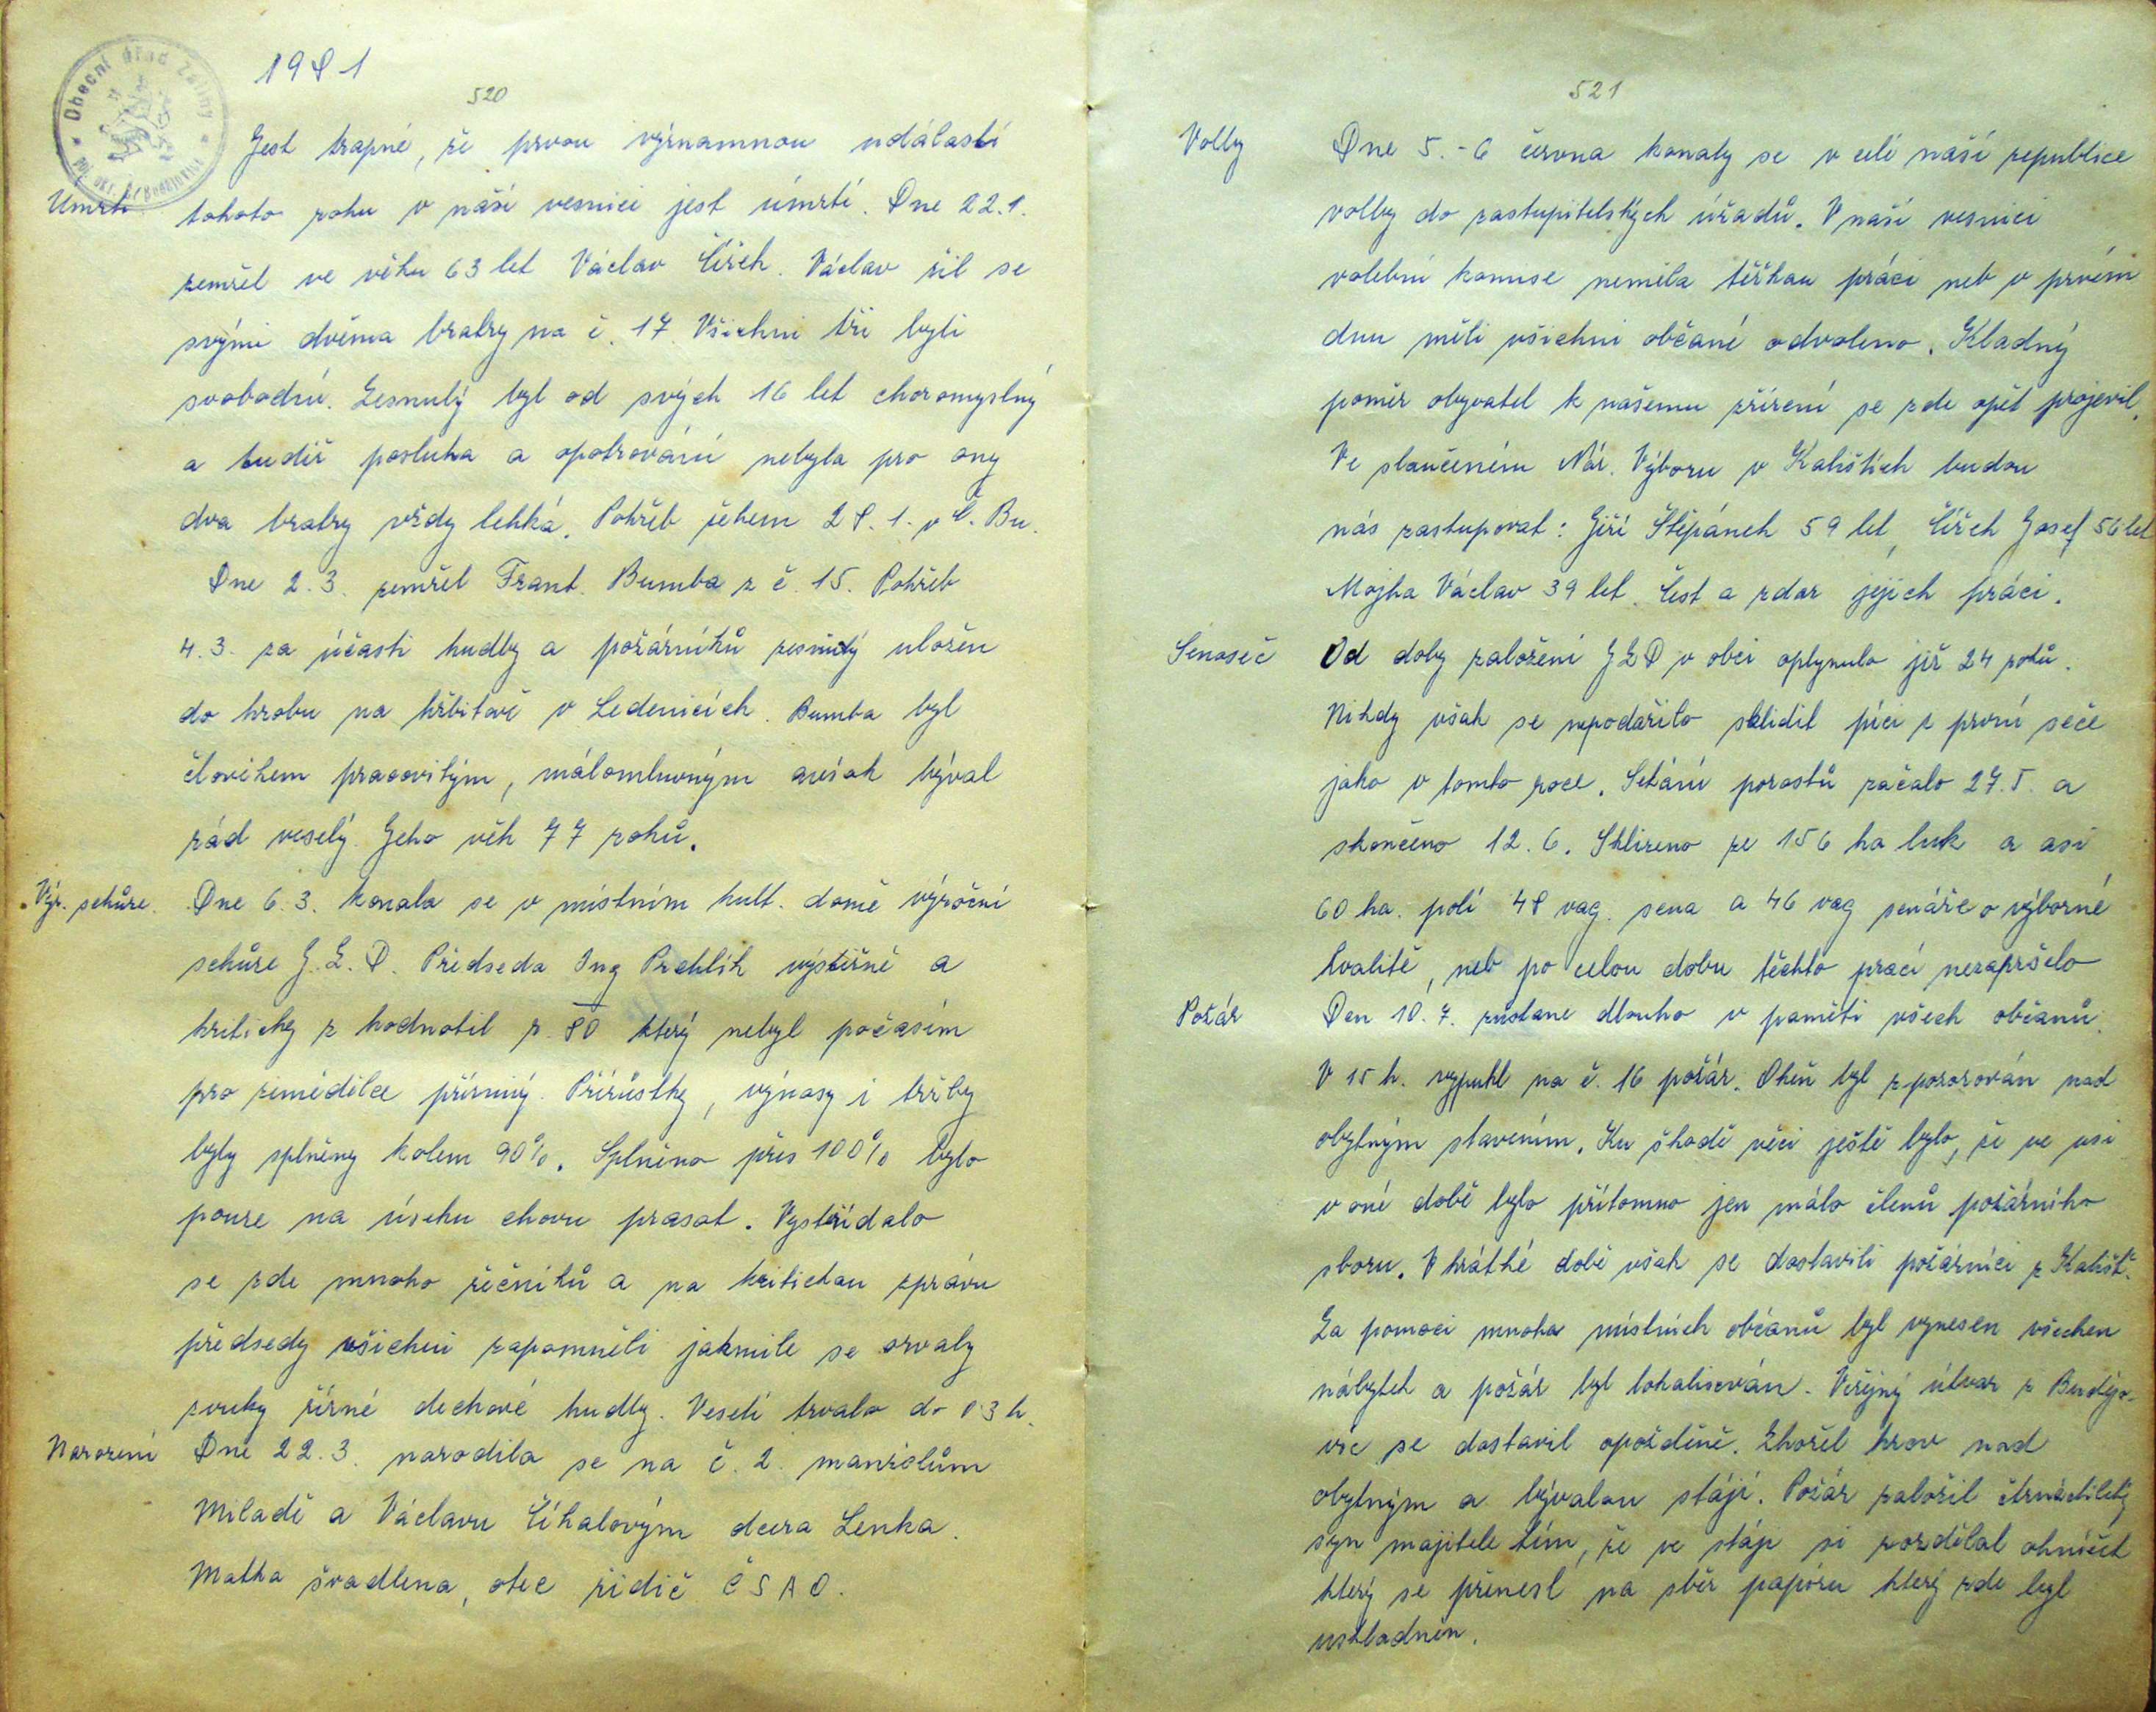 1981
520
Jest trapné, že prvou významnou událastí
Úmrtí tohoto roku v naší vesnici jest úmrtí. Dne 22.1.
zemřel ve věku 63 let Václav Čížek. Václav žil se
svými dvěma bratry na č. 17. Všichni tři byli
svobodní. Zesnulý byl od svých 16 let choromyslný
a tudíž posluha a opatrování nebyla pro ony
dva bratry vždy lehká. Pohřeb žehem 28.1. v Č. Bu.
Dne 2.3. zemřel Frant. Bumba z č. 15. Pohřeb
4.3. za účasti hudby a požárníků zesnulý uložen
do hrobu na hřbitově v Ledenicích. Bumba byl
člověkem pracovitým, málomluvným avšak býval
rád veselý. Jeho věk 77 roků.
Výr. schůze. Dne 6.3. konala se v místním kult. domě výroční
schůze J.Z.D. Předseda Ing Prchlík výstižně a
kriticky z hodnotil r. 80 který nebyl počasím
pro zemědělce příznivý. Přírůstky, výnosy i tržby
byly splněny kolem 90%. Splněno přes 100% bylo
pouze na úseku chovu prasat. Vystřídalo
se zde mnoho řečníků a na kritickou zprávu
předsedy všichni zapomněli jakmile se ozvaly
zvuky řízné dechové hudby. Veselí trvalo do 03 h.
Narození Dne 22.3. narodila se na č. 2. manželům
Miladě a Václavu Číhalovým dcera Lenka.
Matka švadlena, otec řidič ČSAO.
521
Volby Dne 5.-6 června konaly se v celé naší republice
volby do zastupitelských úřadů. V naší vesnici
volební komise neměla těžkou práci neb v prvém
dnu měli všichni občané odvoleno. Kladný
poměr obyvatel k našemu zřízení se zde opět projevil.
Ve sloučeném Nár. Výboru v Kalištích budou
nás zastupovat: Jiří Štěpánek 59 let, Čížek Josef 56 let
Mojha Václav 39 let. Čest a zdar jejich práci.
Senoseč Od doby založení JZD v obci oplynulo již 24 roků.
Nikdy však se nepodařilo sklidit píci z první seče
jako v tomto roce. Sečání porostů začalo 27.5. a
skončeno 12.6. Sklizeno ze 156 ha luk a asi
60 ha. polí 48 vag. sena a 46 vag senáže o výborné
kvalitě, neb po celou dobu těchto prací nezapršelo
Požár Den 10.7. zůstane dlouho v paměti všech občanů.
V 15 h. vypukl na č. 16 požár. Oheň byl zpozorován nad
obytným stavením. Ku škodě věci ještě bylo, že ve vsi
v oné době bylo přítomno jen málo členů požárního
sboru. V krátké době však se dostavili požárníci z Kališť.
Za pomoci mnoha místních občanů byl vynesen všechen
nábytek a požár byl lokalisován. Veřejný útvar z Budějo-
vic se dostavil opožděně. Shořel krov nad
obytným a bývalou stájí. Požár založil čtrnáctiletý
syn majitele tím, že ve stáji si rozdělal ohníček
který se přenesl na sběr papíru který zde byl
uskladněn.